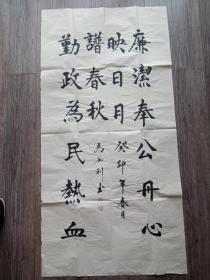 廉潔奉公丹心
映日月
勤政為民熱血
譜春秋
癸卯年春月